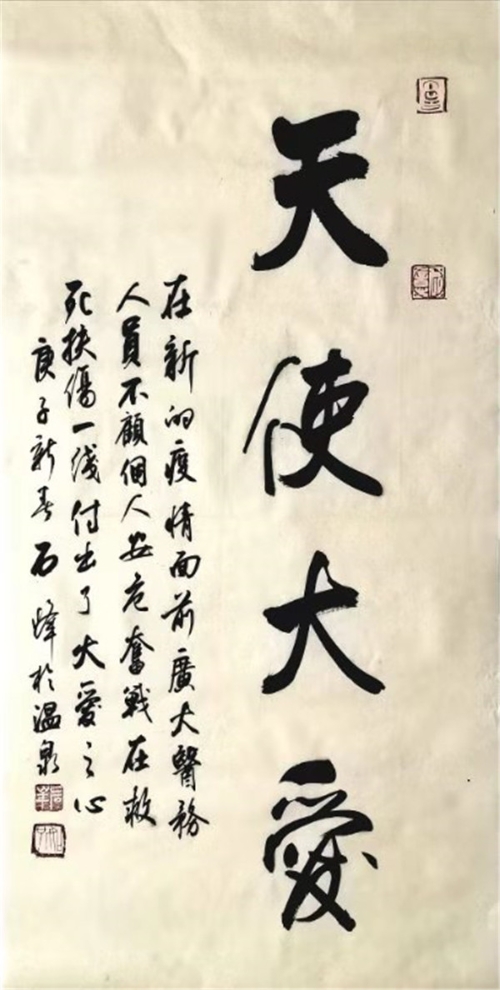 天使大愛
在新的疫情面前廣大醫務
人員不顧個人安危奮戰在救
死扶傷一线付出了大愛之心
庚子新春石峰於温泉